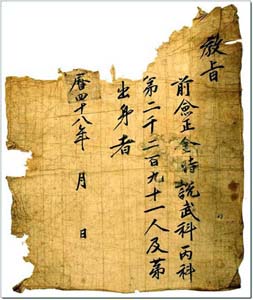 教旨
前僉正金時說武科丙科
第二千二百九十一人及第
出身者
曆四十八年 月 日